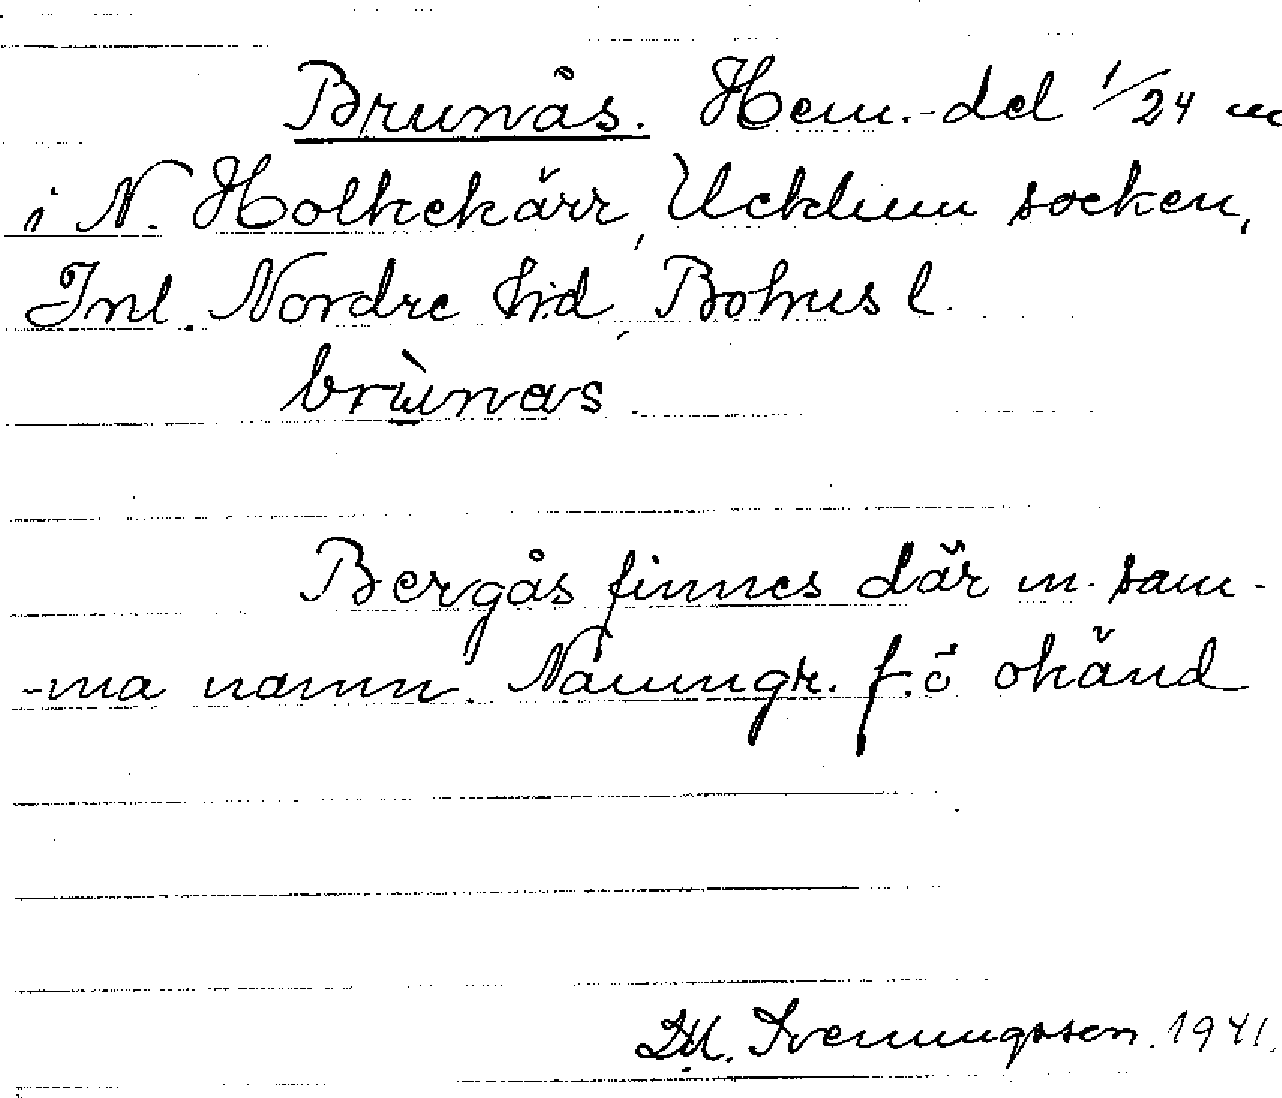 Brunås. Hem.-del 1/24 m
i N. Holkekärr, Ucklum socken,
Inl. Nordre hd, Bohus l.
brùnas
Bergås finnes där m. sam-
-ma namn. Namngr. f.ö okänd
Svenungsson. 1941.